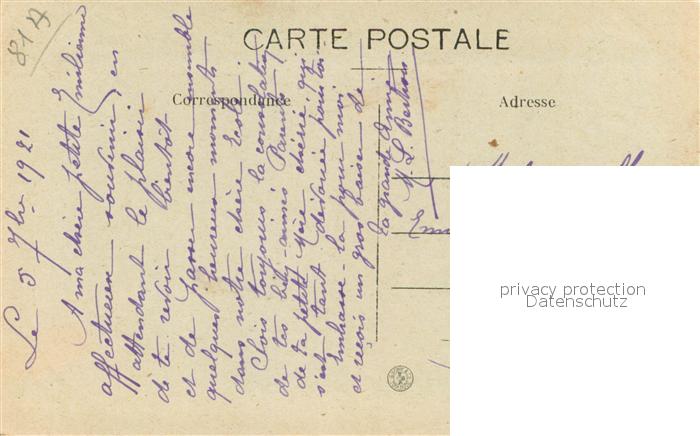 81 A
CARTE POSTALE
Correspondance
Adresse
Le 5 7bre 1921
A ma chère petite Emilienne
affectueux souvenir, en
attendant le plaisir
de te revoir bientôt
et de passer encore ensemble
quelques heureux moments
dans notre chère Ecole.
Sois toujours la consolation
de tes bien-aimés Parents
de ta petite Mère chérie, qui
s'est tant dévouée pour toi
Embrasse-la pour moi
et reçois un gros baiser de
ta grande amie
M L.
privacy protection
Datenschutz